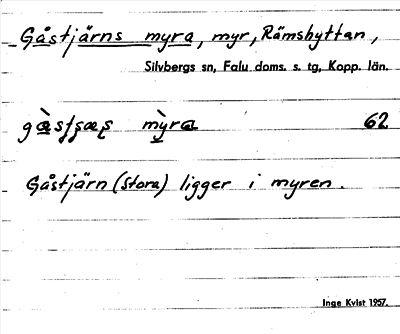 Gåstjärns myra, myr, Rämshyttan,
Silvbergs sn, Falu doms. s. tg, Kopp. län.
62
Gåstjärn (Stora) ligger i myren.
Inge Kvist 1957.